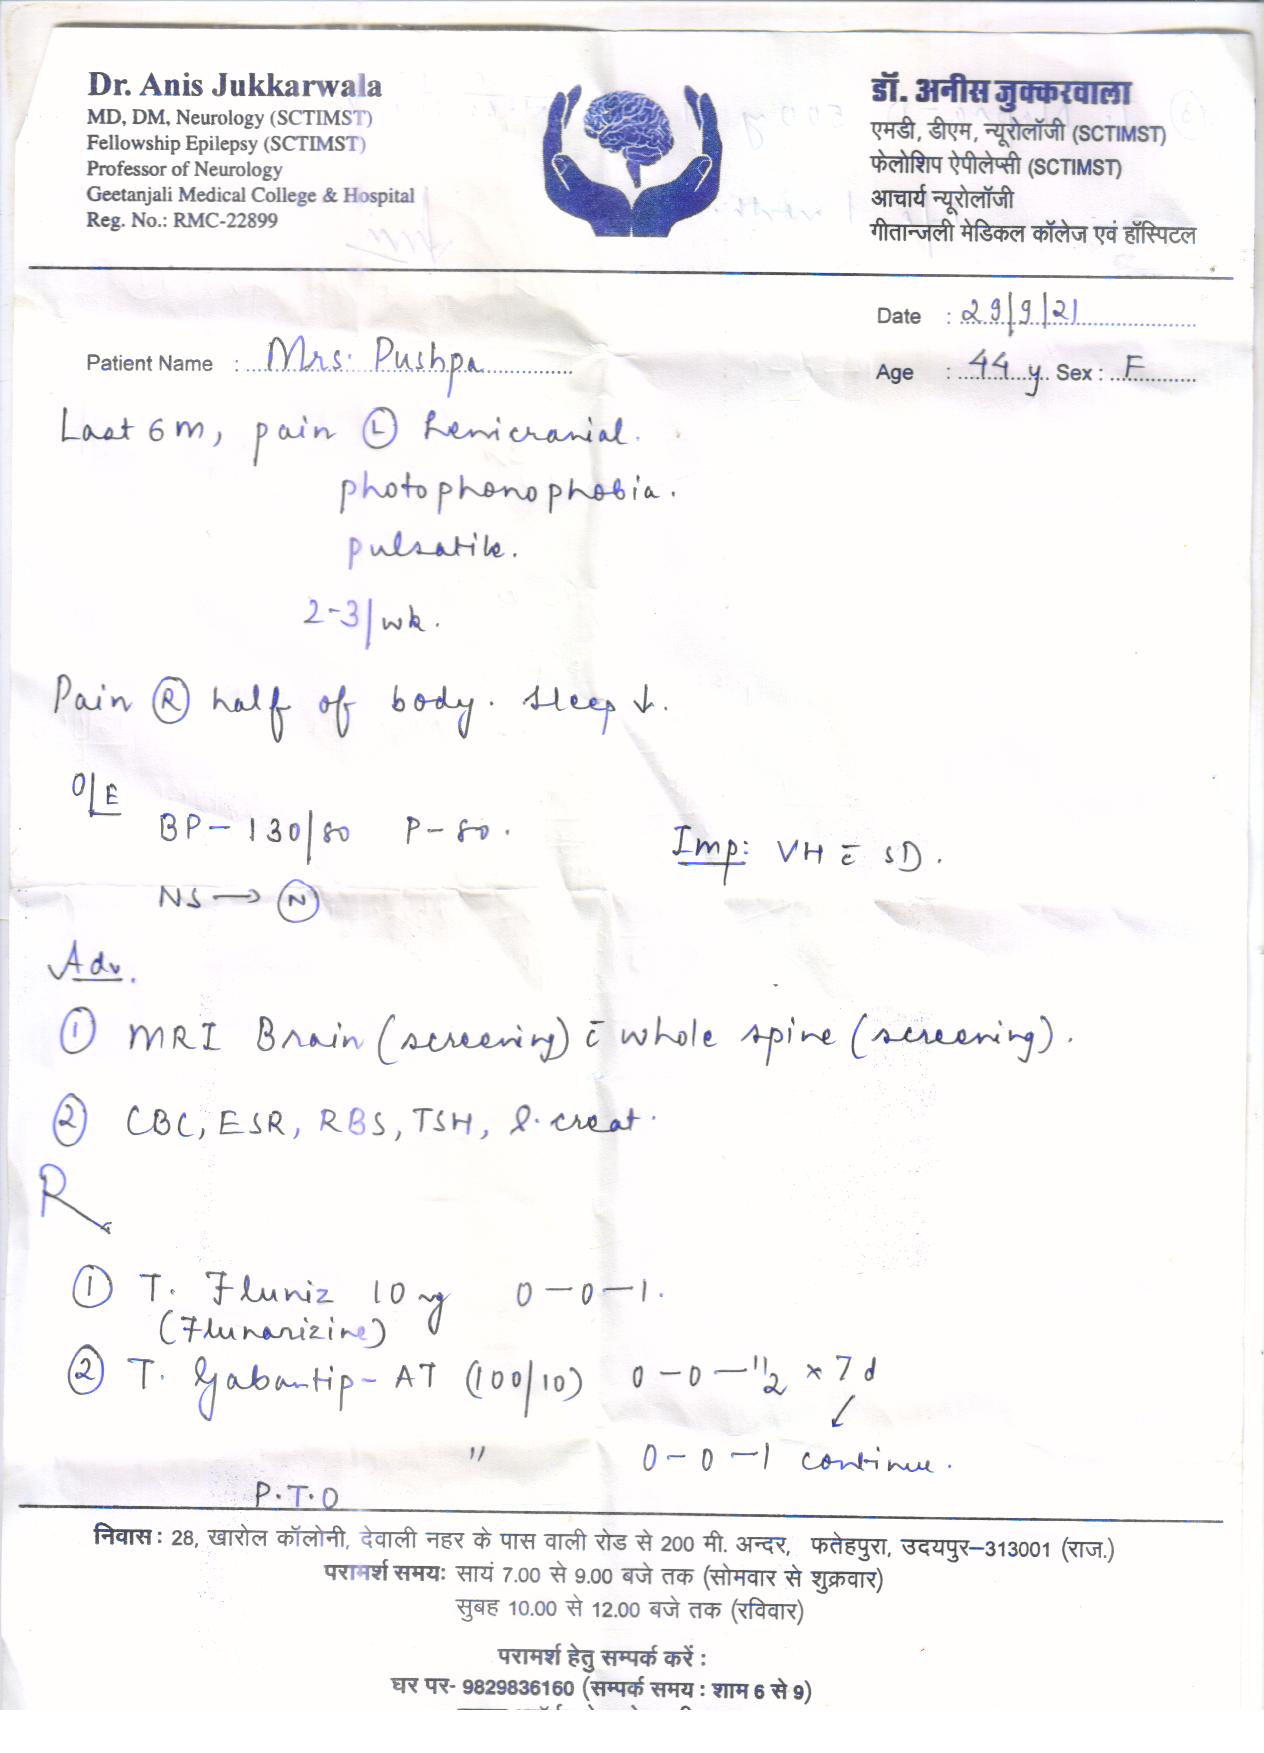 Dr. Anis Jukkarwala
MD, DM, Neurology (SCTIMST)
Fellowship Epilepsy (SCTIMST)
Professor of Neurology
Geetanjali Medical College & Hospital
Reg. No.: RMC-22899
डॉ. अनीस जुक्करवाला
एमडी, डीएम, न्यूरोलॉजी (SCTIMST)
फेलोशिप ऐपीलेप्सी (SCTIMST)
आचार्य न्यूरोलॉजी
गीतान्जली मेडिकल कॉलेज एवं हॉस्पिटल
Date : 29/9/21
Patient Name : Mrs. Pushpa
Age : 44 y Sex : F
Last 6 m, pain Ⓛ hemicranial.
photophonophobia.
pulsatile.
2-3/wk.
Pain Ⓡ half of body. Sleep ↓.
O/E
BP - 130/80 P - 80.
Imp: VH c̄ SD.
NS → Ⓝ
Adv.
① MRI Brain (screening) c̄ whole spine (screening).
② CBC, ESR, RBS, TSH, S. creat.
R
① T. Fluniz 10 mg 0-0-1.
(Flunarizine)
② T. Gabantip-AT (100/10) 0-0-1/2 × 7 d
↓
" 0-0-1 continue.
P.T.O
निवास : 28, खारोल कॉलोनी, देवाली नहर के पास वाली रोड से 200 मी. अन्दर, फतेहपुरा, उदयपुर–313001 (राज.)
परामर्श समयः सायं 7.00 से 9.00 बजे तक (सोमवार से शुक्रवार)
सुबह 10.00 से 12.00 बजे तक (रविवार)
परामर्श हेतु सम्पर्क करें :
घर पर- 9829836160 (सम्पर्क समय : शाम 6 से 9)